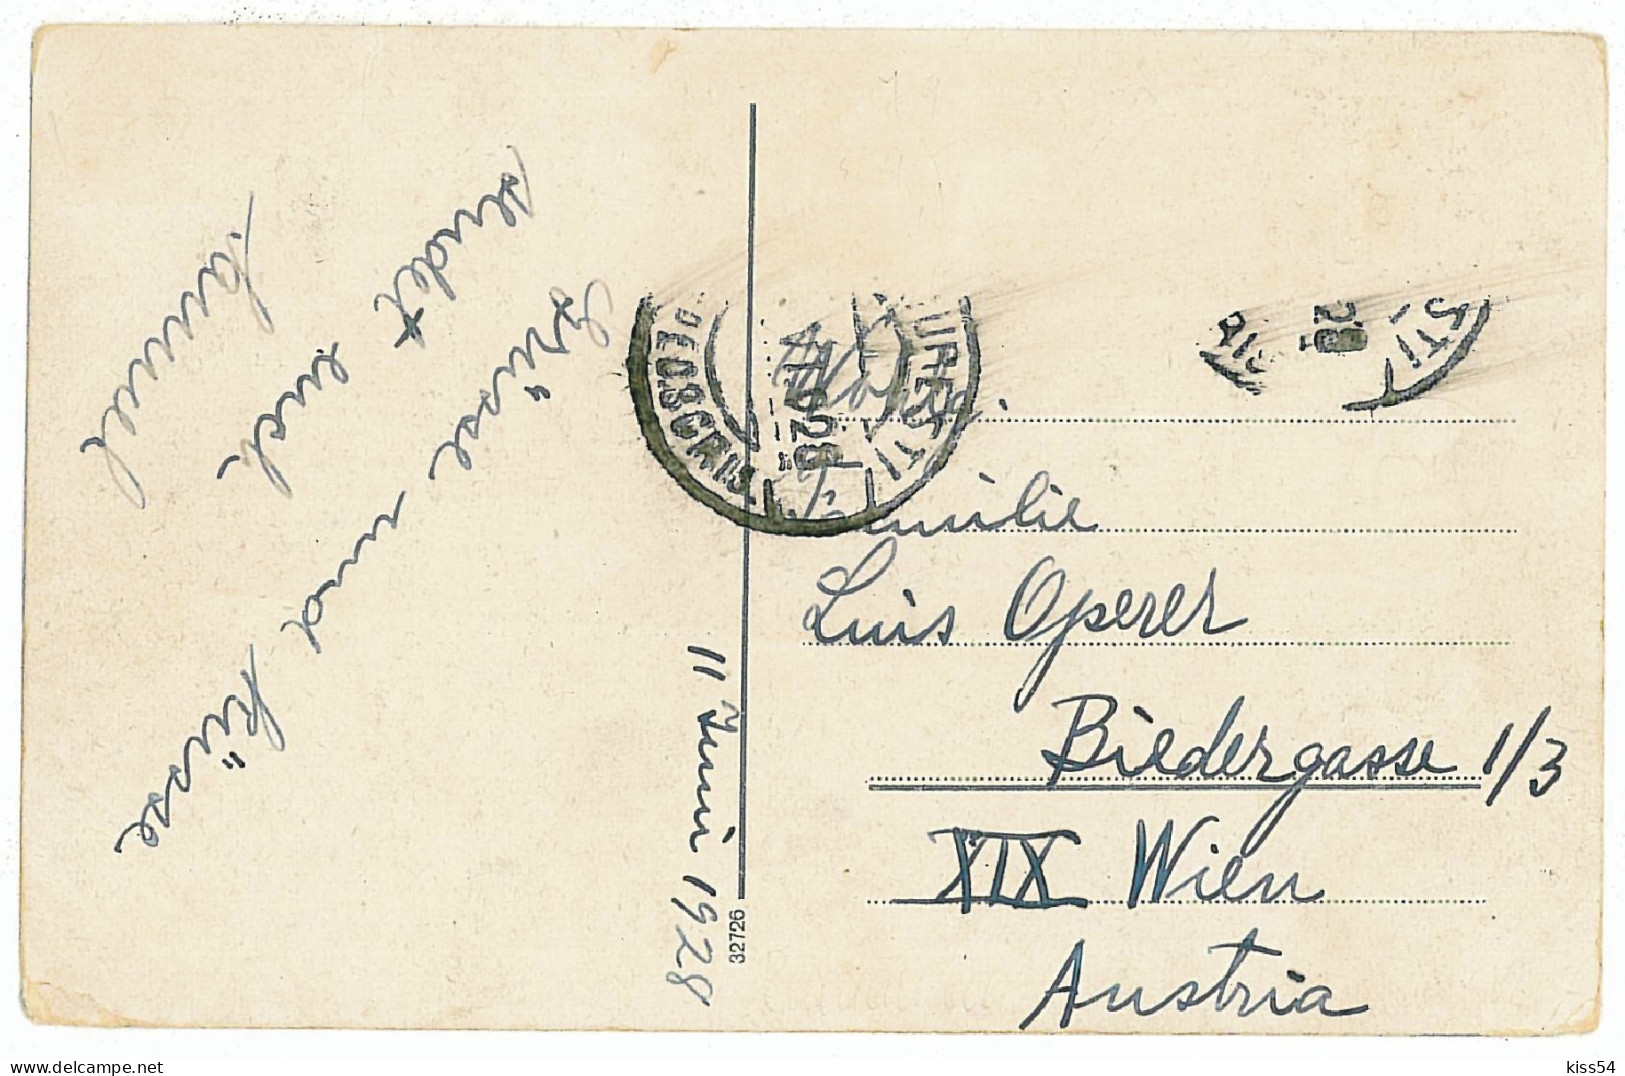 Grüsse und Küsse
sendet euch
Samuel
11 Juni 1928
32726
BUCURESTI
28
STI
28
Familie
Luis Operer
Biedergasse 1/3
XIX Wien
Austria
www.delcampe.net
kiss54